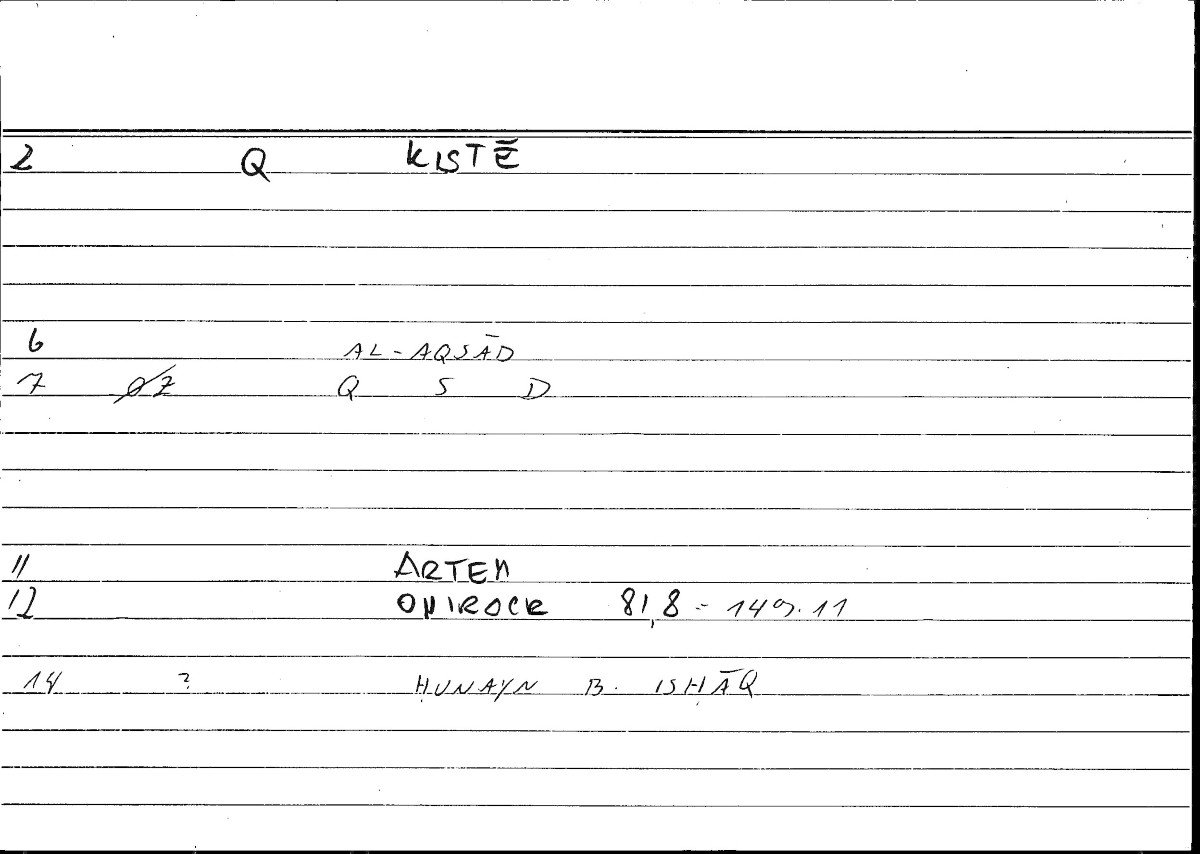 2 Q KISTĒ
6 AL-AQSĀD
7 Q S D
11 ARTEM
12 ONIROCR 81,8 = 149.11
14 ? ḤUNAYN B. ISḤĀQ